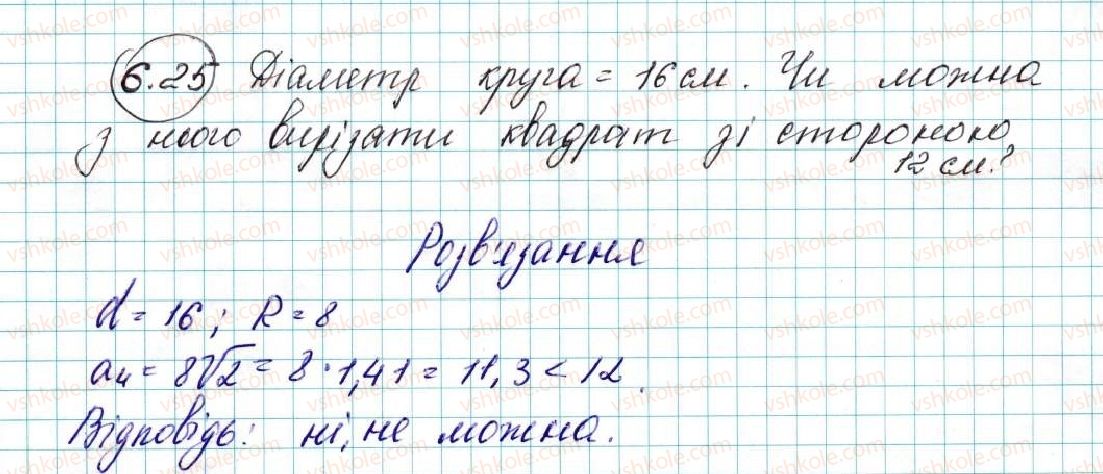 6.25 Діаметр круга = 16 см. Чи можна
з нього вирізати квадрат зі стороною
12 см.?
Розв'язання
d = 16; R = 8
a₄ = 8√2 = 8 · 1,41 = 11,3 < 12.
Відповідь: ні, не можна.